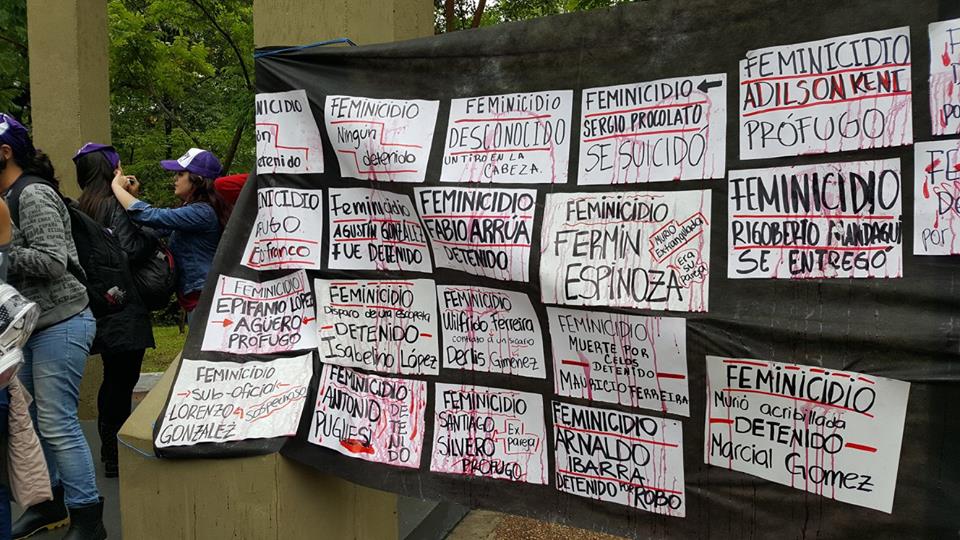 etenido
FEMINICIDIO
Ningún
detenido
FEMINICIDIO
DESCONOCIDO
UN TIRO EN LA
CABEZA.
FEMINICIDIO
SERGIO PROCOLATO
SE SUICIDÓ
FEMINICIDIO
ADILSON KENI
PRÓFUGO
MINICIDIO
FUGO
Franco
Feminicidio
AGUSTÍN GONZALEZ
FUE DETENIDO
FEMINICIDIO
FABIO ARRÚA
DETENIDO
FEMINICIDIO
FERMÍN
ESPINOZA
MURIÓ
Extrangulada
Era su
pareja
FEMINICIDIO
RIGOBERTO
SE ENTREGÓ
FEMINICIDIO
EPIFANIO LÓPEZ
AGÜERO
PRÓFUGO
FEMINICIDIO
Disparo de una escopeta
DETENIDO
Isabelino López
FEMINICIDIO
Wilfrido Ferreira
contrató a un sicario
Derlis Giménez
FEMINICIDIO
MUERTE POR
CELOS
DETENIDO
MAURICIO FERREIRA
FEMINICIDIO
SUB-oficial
LORENZO
GONZALEZ
sospechoso
FEMINICIDIO
ANTONIO
PUGLIESI
DETENIDO
FEMINICIDIO
SANTIAGO
SILVERO
PRÓFUGO
Ex
pareja
FEMINICIDIO
ARNALDO
IBARRA
DETENIDO POR ROBO
FEMINICIDIO
Murió acribillada
DETENIDO
Marcial Gomez